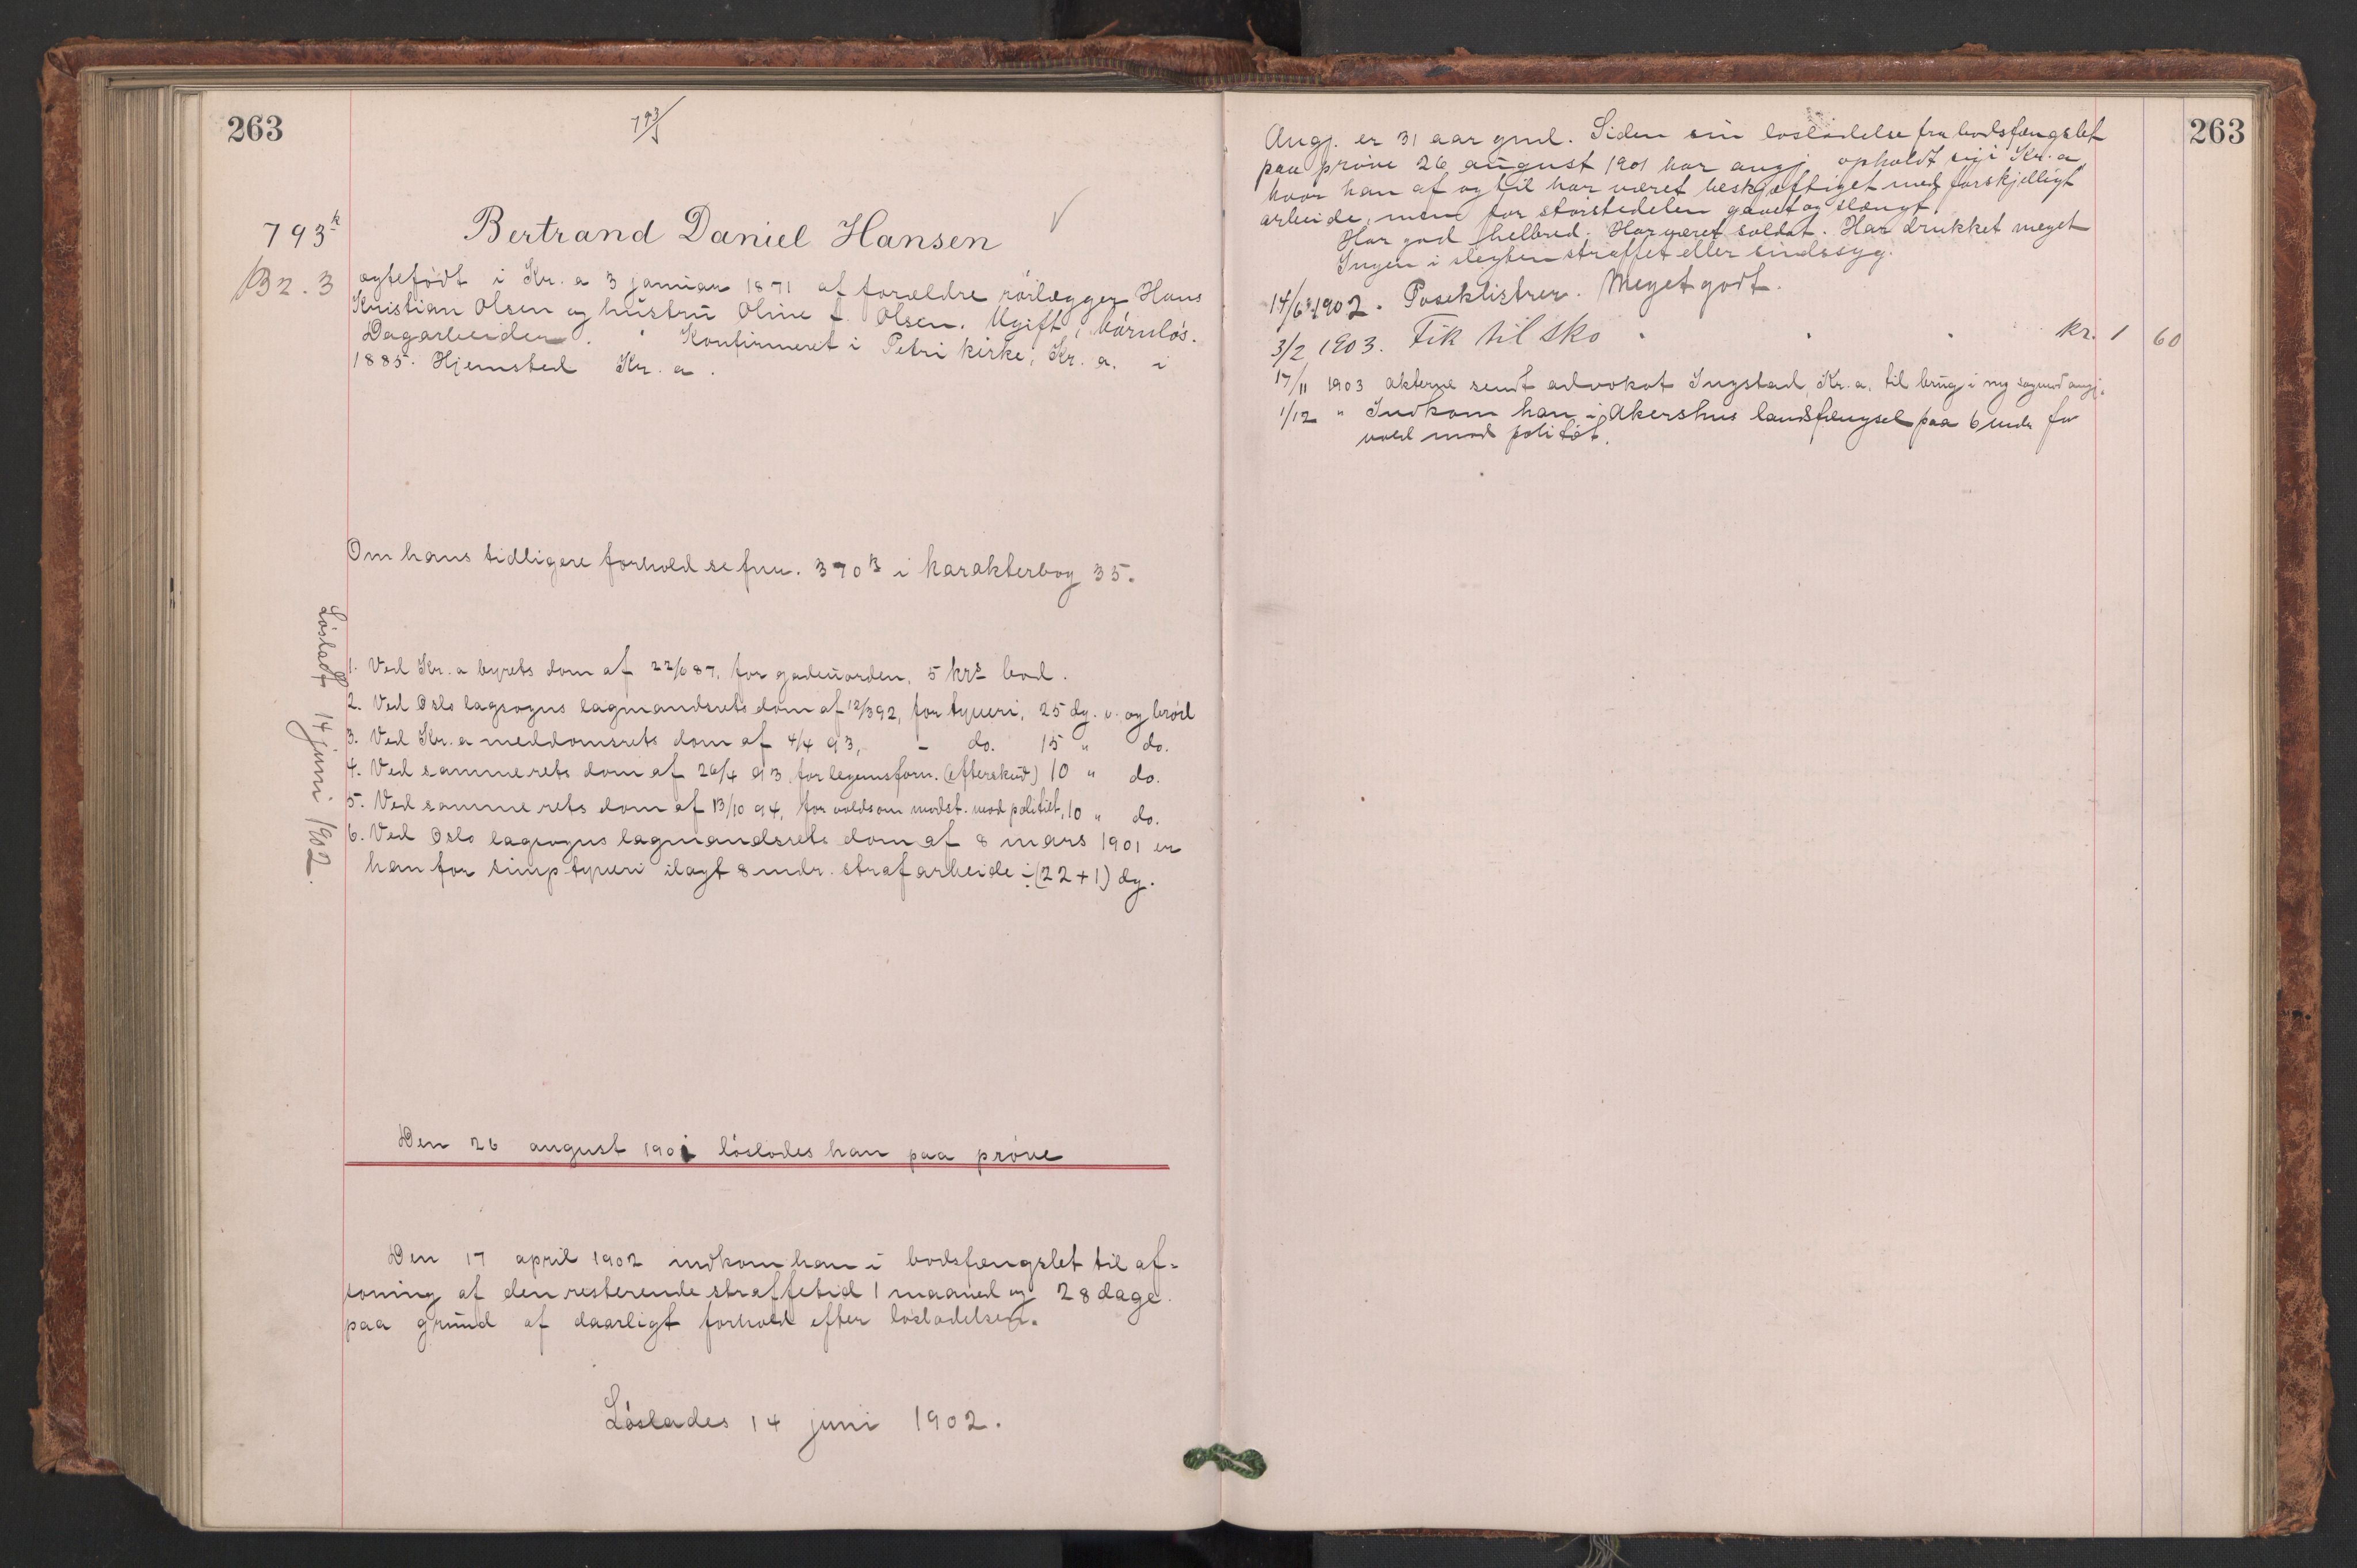 263
793/5
793k
Bertrand Daniel Hansen
B2. 3
ægtefödt i Kr.a 3 januar 1871 af forældre rörlægger Hans
Kristian Olsen og hustru Oline f. Olsen. Ugift, barnlös.
Dagarbeider. Konfirmeret i Petri kirke, Kr.a. i
1885. Hjemsted Kr.a.
Om hans tidligere forhold se fnr. 370B i karakterbog 35.
Lösladt 14 juni 1902.
1. Ved Kr.a byrets dom af 22/6 87, for gadeuorden, 5 krs bod.
2. Ved Oslo lagsogns lagmandsrets dom af 12/3 92, for tyveri, 25 dg. v. og bröd
3. Ved Kr.a meddomsrets dom af 4/4 93, - do. 15 " do.
4. Ved samme rets dom af 26/4 93, for legemsforn. (efterskud) 10 " do.
5. Ved samme rets dom af 13/10 94, for voldsom modst. mod politiet, 10 " do.
6. Ved Oslo lagsogns lagmandsrets dom af 8 mars 1901 er
han for simp. tyveri ilagt 8 mdr. strafarbeide ÷ (22 + 1) dg.
Den 26 august 1901 löslodes han paa pröve
Den 17 april 1902 indkom han i bodsfængslet til af-
soning af den resterende straffetid 1 maaned og 28 dage
paa grund af daarligt forhold efter lösladelsen.
Löslades 14 juni 1902.
263
Angj. er 31 aar gml. Siden sin lösladelse fra bodsfængslet
paa pröve 26 august 1901 har angj. opholdt sig i Kr.a,
hvor han af og til har været beskjæftiget med forskjelligt
arbeide, men for störstedelen gaaet og slængt.
Har god helbred. Har været soldat. Har drukket meget
Ingen i slegten straffet eller sindssyg.
14/6 1902. Poseklistrer. Meget godt.
3/2 1903. Fik til sko kr. 1 60
17/11 1903 akterne sendt advokat Ingstad, Kr.a. til brug i ny sag mod angj.
1/12 " Indkom han i Akershus landsfængsel paa 6 mdr for
vold mod politiet.